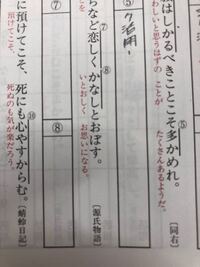 はしかるべきことこそ多かめれ。
わしいと思うはずの ことが たくさんあるようだ。
⑤
〔同右〕
⑤ ク活用!
らなど恋しくかなしとおぼす。
⑦
⑧
いとおしく お思いになる。
〔源氏物語〕
⑦
⑧
に預けてこそ、死にも心やすからむ。
⑩
預けてこそ、 死ぬのも気が楽だろう。
〔蜻蛉日記〕